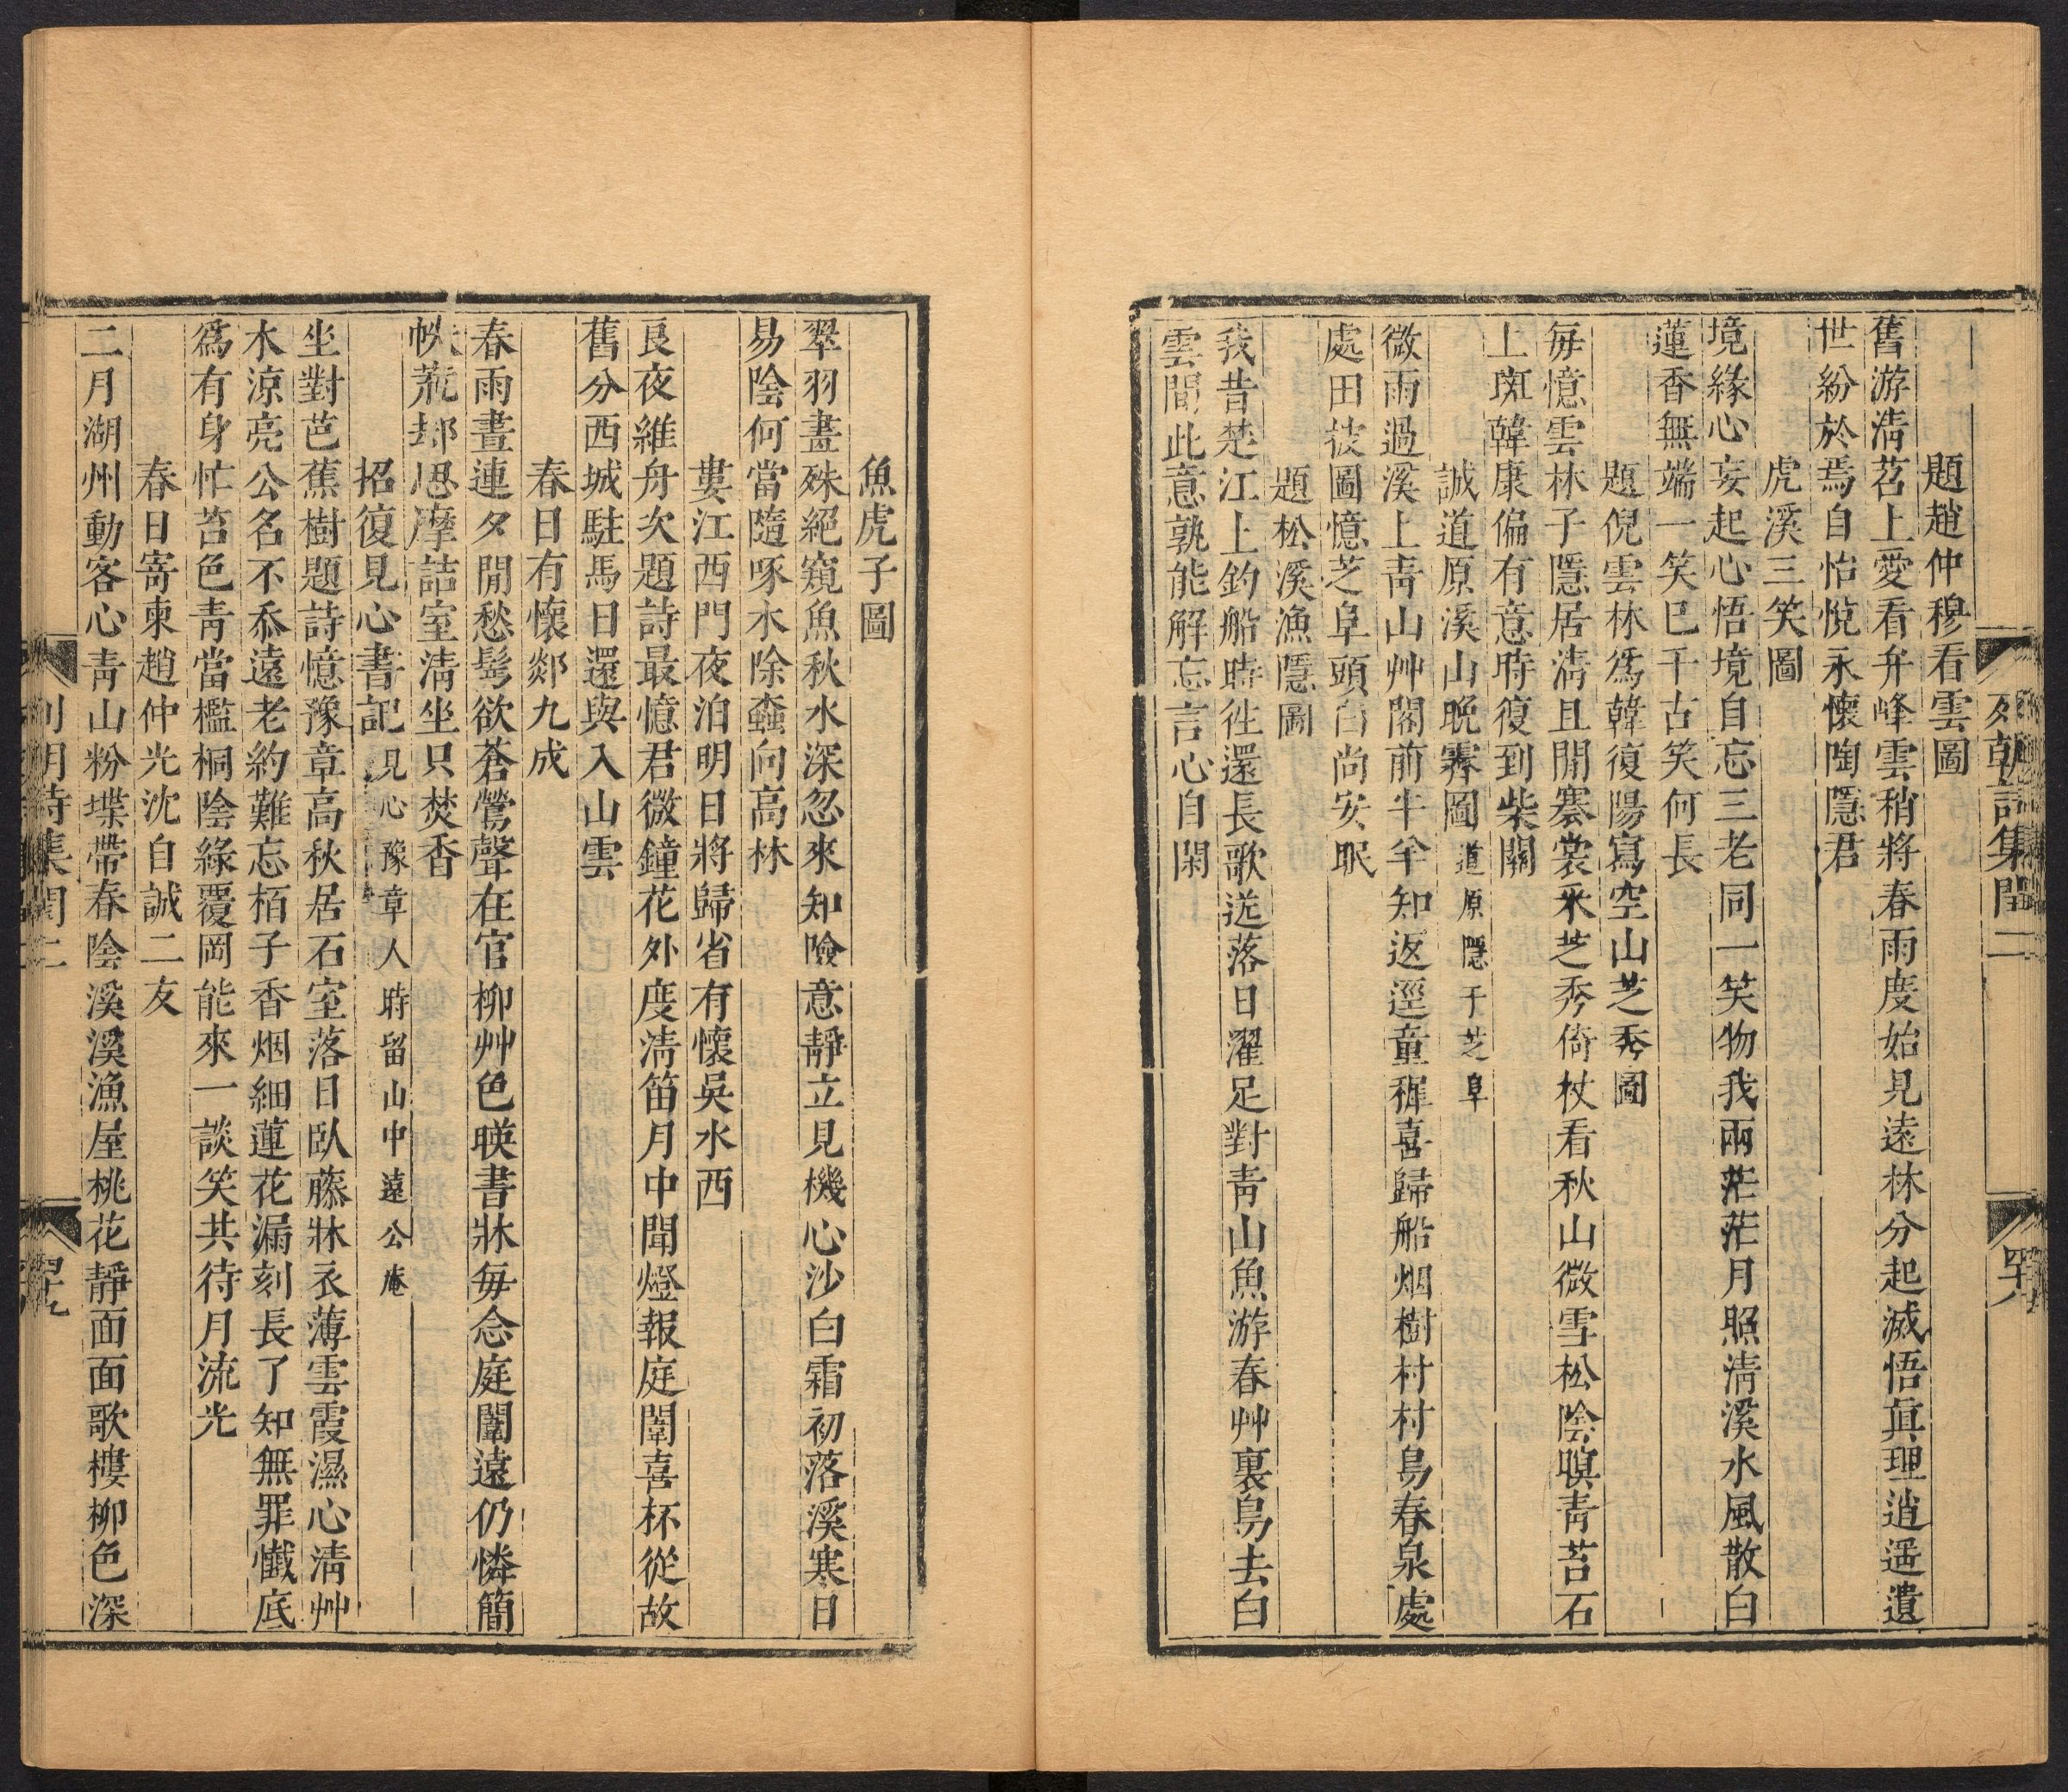 列朝詩集閏二
四十八
題趙仲穆看雲圖
舊游淸苕上愛看弁峰雲稍將春雨度始見遠林分起滅悟眞理逍遥遺
世紛於焉自怡悅永懷陶隱君
虎溪三笑圖
境緣心妄起心悟境自忘三老同一笑物我兩茫茫月照淸溪水風散白
蓮香無端一笑巳千古笑何長
題倪雲林爲韓復陽寫空山芝秀圖
每憶雲林子隱居淸且閒褰裳采芝秀倚杖看秋山微雪松陰暝靑苔石
上斑韓康偏有意時復到柴關
誠道原溪山晚霽圖道原隱于芝阜
微雨過溪上靑山艸閣前牛羊知返逕童穉喜歸船烟樹村村鳥春泉處
處田披圖憶芝阜頭白尚安眠
題松溪漁隱圖
我昔楚江上釣船時徃還長歌送落日濯足對靑山魚游春艸裏鳥去白
雲間此意孰能解忘言心自閑
魚虎子圖
翠羽畫殊絕窺魚秋水深忽來知險意靜立見機心沙白霜初落溪寒日
易陰何當隨啄木除蠹向高林
婁江西門夜泊明日將歸省有懷吳水西
良夜維舟次題詩最憶君微鐘花外度淸笛月中聞燈報庭闈喜杯從故
舊分西城駐馬日還與入山雲
春日有懷郯九成
春雨晝連夕閒愁髩欲蒼鶯聲在官柳艸色暎書牀每念庭闈遠仍憐簡
帙荒却思摩詰室淸坐只焚香
招復見心書記見心豫章人時留山中遠公庵
坐對芭蕉樹題詩憶豫章高秋居石室落日臥藤牀衣薄雲霞濕心淸艸
木涼亮公名不忝遠老約難忘栢子香烟細蓮花漏刻長了知無罪懺底
爲有身忙苔色靑當檻桐陰綠覆岡能來一談笑共待月流光
春日寄柬趙仲光沈自誠二友
二月湖州動客心靑山粉堞帶春陰溪溪漁屋桃花靜面面歌樓柳色深
列朝詩集閏二
四十九